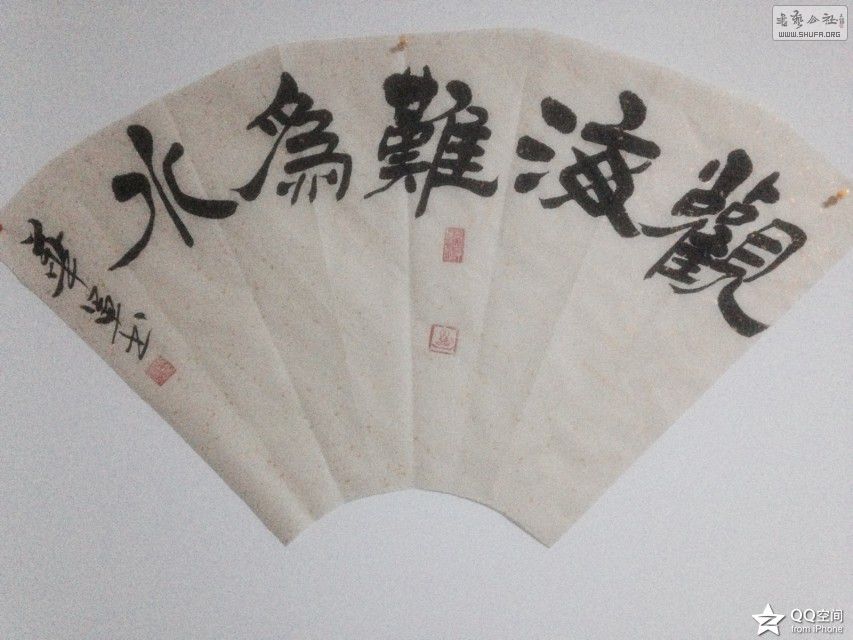 觀海難為水
書藝公社
WWW.SHUFA.ORG
QQ空间
from iPhone